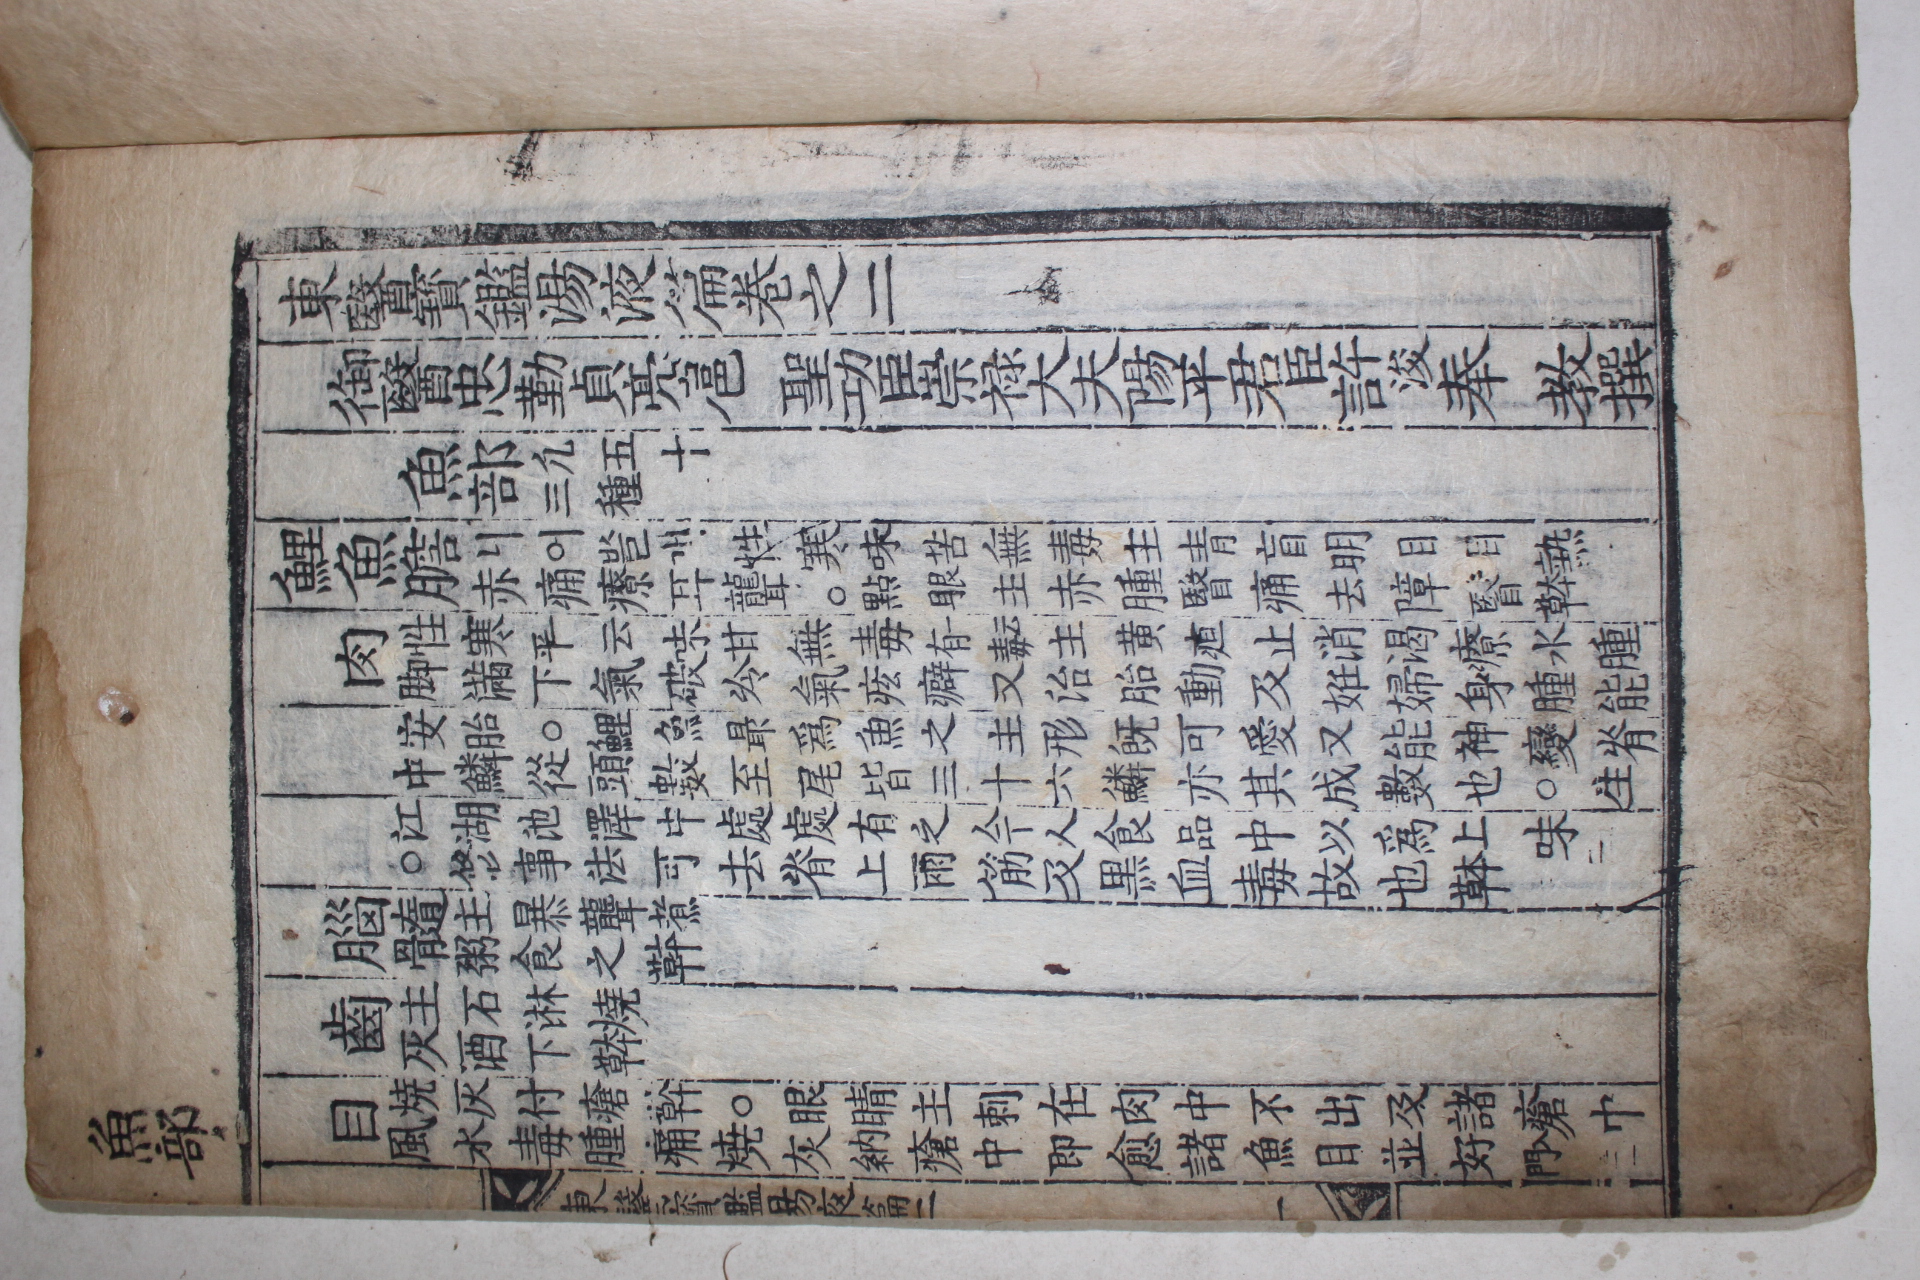 魚部
東醫寶鑑湯液篇卷之二
御醫忠勤貞亮扈 聖功臣崇祿大夫陽平君臣許浚奉 教撰
魚部 凡五十
三種
鯉魚膽 니어쓸개性寒味苦無毒主靑盲明目目熱
赤痛療耳聾○點眼主赤腫瞖痛去障瞖
肉 性寒平云味甘無毒有毒云主黃疸止消渴療水腫
脚滿下氣破冷氣痃癖又治胎動及姙婦身腫能
安胎○鯉魚最爲魚之主形旣可愛又能神變脊
中鱗從頭數至尾皆三十六鱗亦其成數也○生
江湖池澤中處處有之今人食品中以爲上味
○修事法可去脊上兩筋及黑血毒故也
腦髓 主暴聾煮
骨 粥食之
齒 主石淋燒
灰酒下
目 燒灰付瘡○眼睛主刺在肉中不出及諸瘡中
風水毒腫痛燒灰納瘡中卽愈諸魚目並好
東醫寶鑑湯液篇二
一